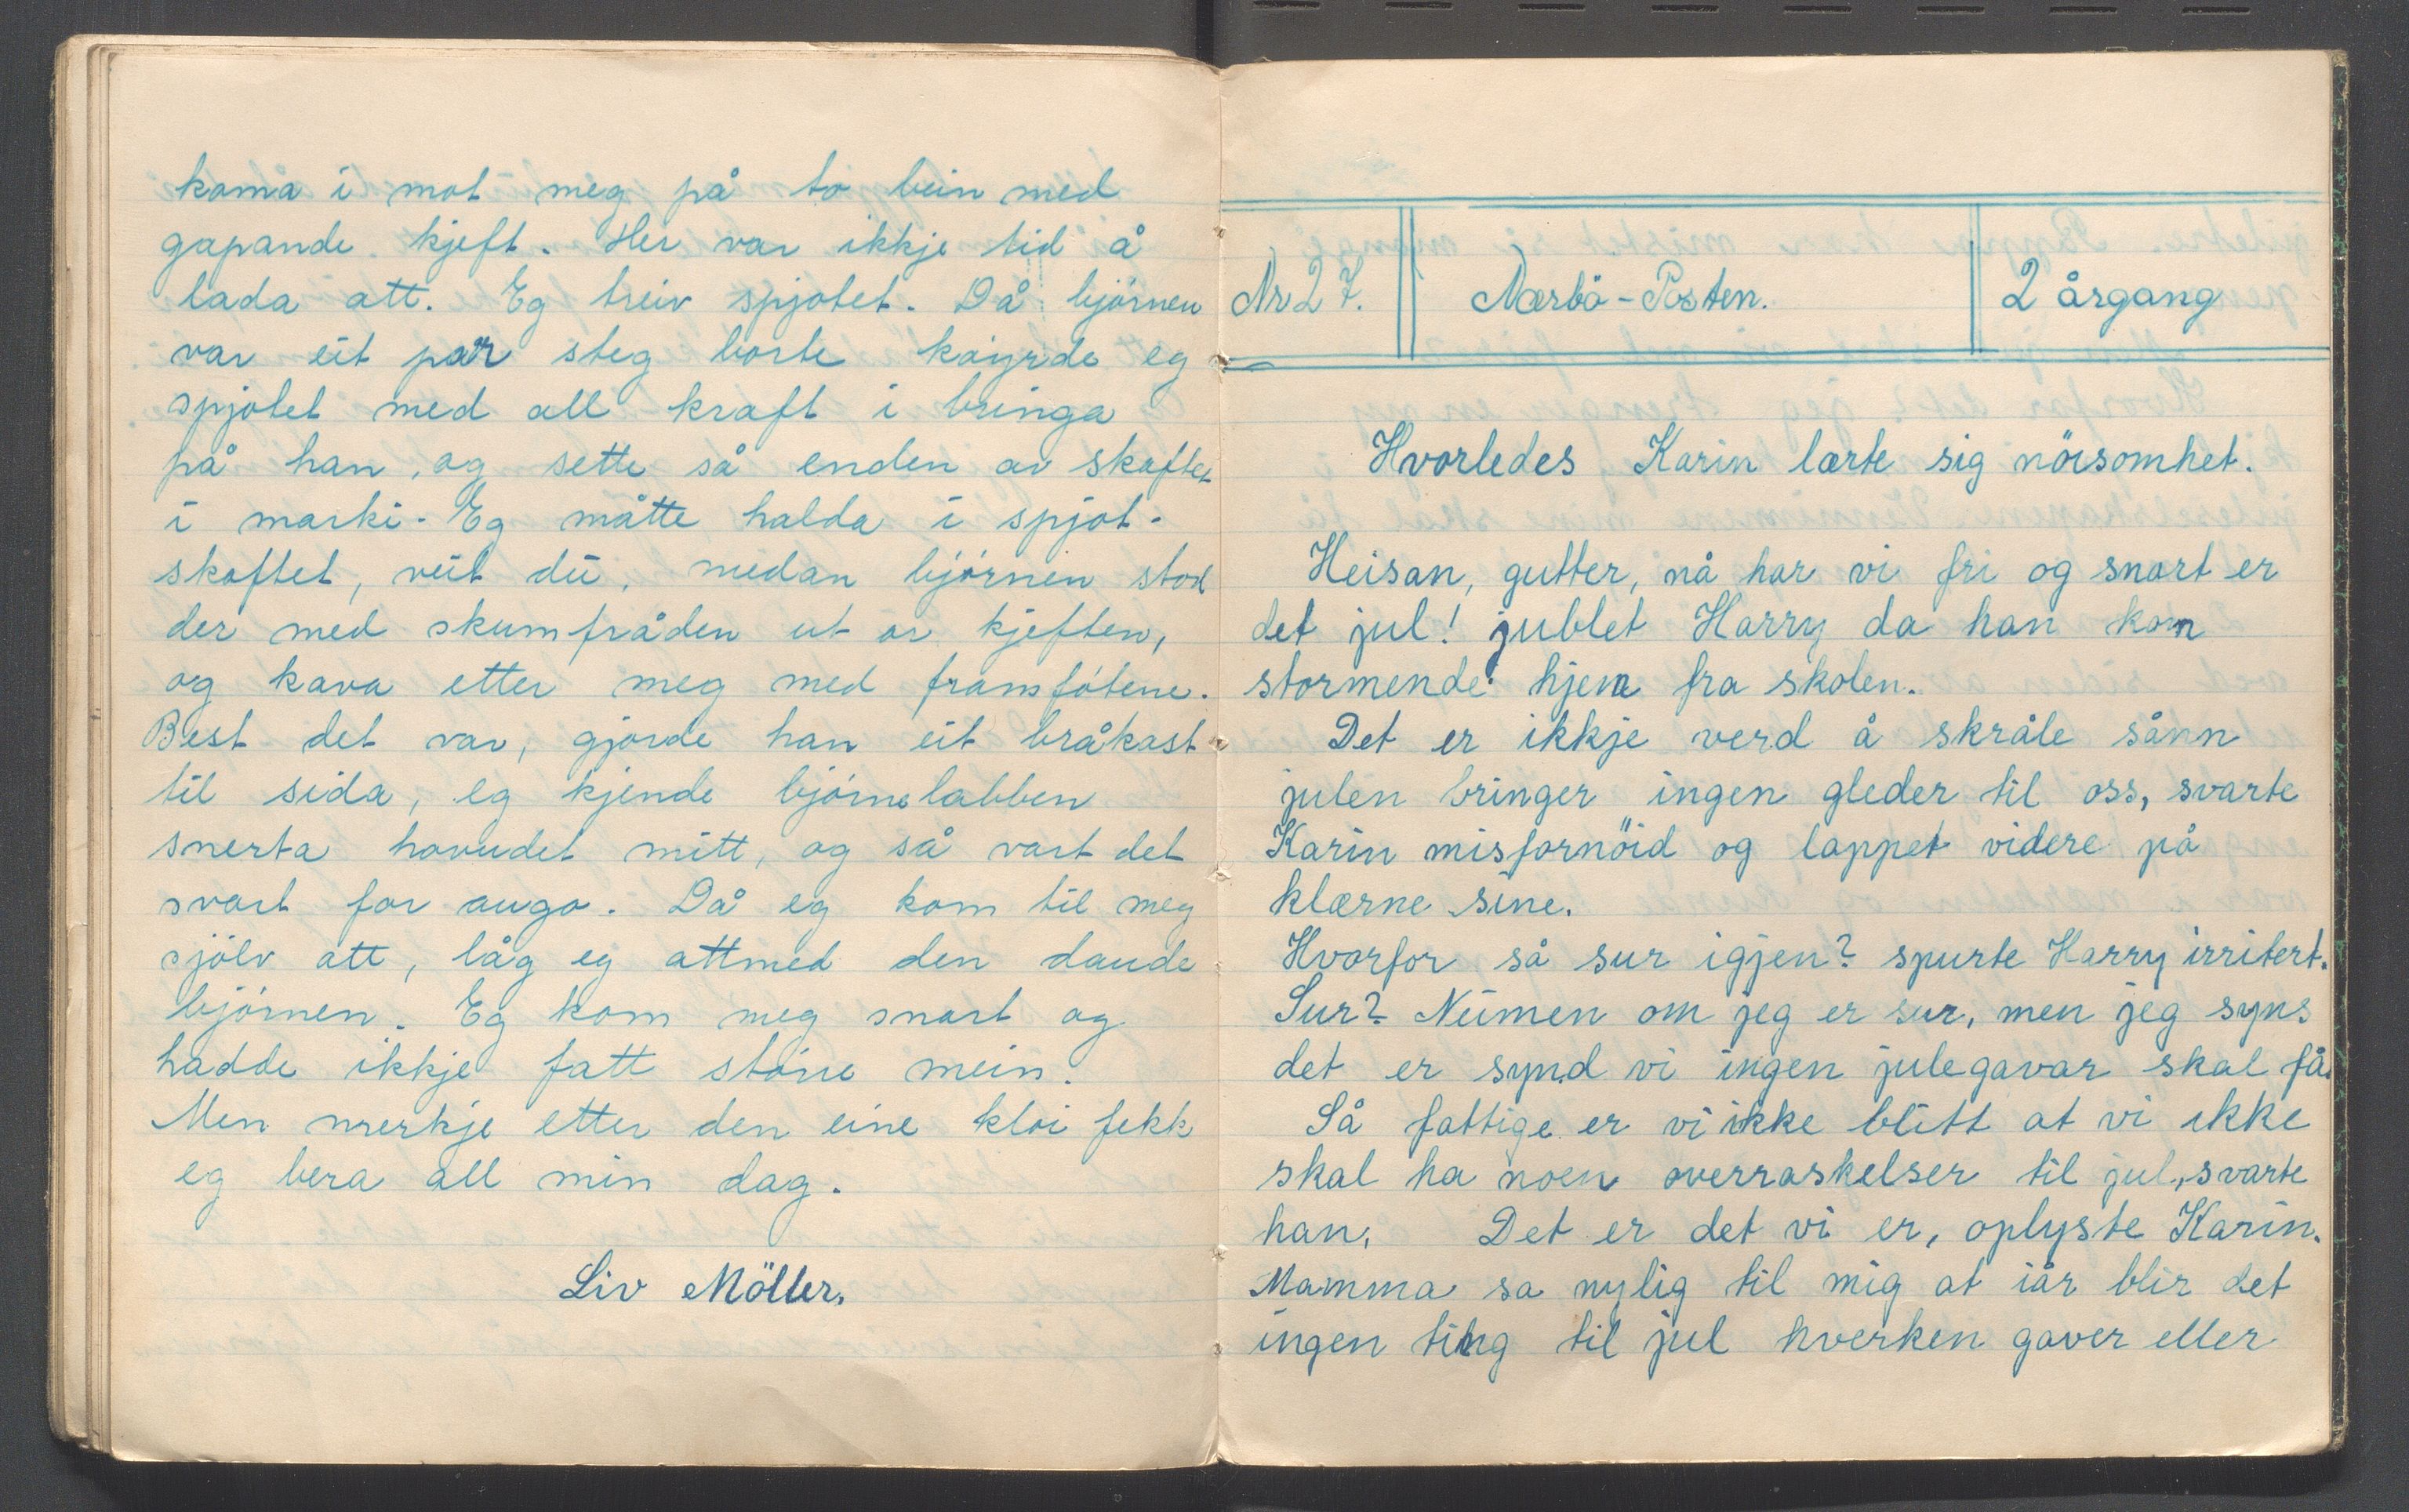 koma i mot meg på to bein med
gapande kjeft. Her var ikkje tid å
lada att. Eg treiv spjotet. Då björnen
var eit par steg borte köyrde eg
spjotet med all kraft i bringa
på han, og sette så enden av skaftet
i marki. Eg måtte halda i spjot-
skaftet, veit du, medan björnen stod
der med skumfråden ut or kjeften,
og kava etter meg med framfötene.
Best det var, gjorde han eit bråkast
til sida, eg kjende björnelabben
snerta hovudet mitt, og så vart det
svart for augo. Då eg kom til meg
sjölv att, låg eg attmed den daude
björnen. Eg kom meg snart og
hadde ikkje fått större mein.
Men merkje etter den eine kloi fekk
eg bera all min dag.
Liv Möller.
Nr 2 7. Nærbö-Posten. 2 årgang
Hvorledes Karin lærte sig nöisomhet.
Heisan, gutter, nå har vi fri og snart er
det jul! jublet Harry da han kom
stormende hjem fra skolen.
Det er ikkje verd å skråle sånn
julen bringer ingen gleder til oss, svarte
Karin misfornöid og lappet videre på
klærne sine.
Hvorfor så sur igjen? spurte Harry irritert.
Sur? Neimen om jeg er sur, men jeg syns
det er synd vi ingen julegavar skal få.
Så fattige er vi ikke blitt at vi ikke
skal ha noen overraskelser til jul, svarte
han. Det er det vi er, oplyste Karin.
Mamma sa nylig til mig at iår blir det
ingen ting til jul hverken gaver eller